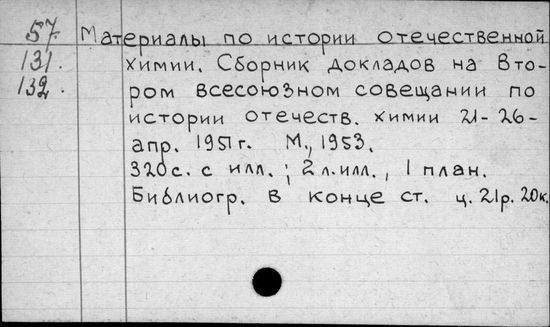 57. Материалы по истории отечественной
131. химии. Сборник докладов на Вто-
132. ром всесоюзном совещании по
истории отечеств. химии 21-26-
апр. 1951 г. М., 1953.
320 с. с илл.; 2 л. илл., 1 план.
Библиогр. в конце ст. ц. 21 р. 20 к.